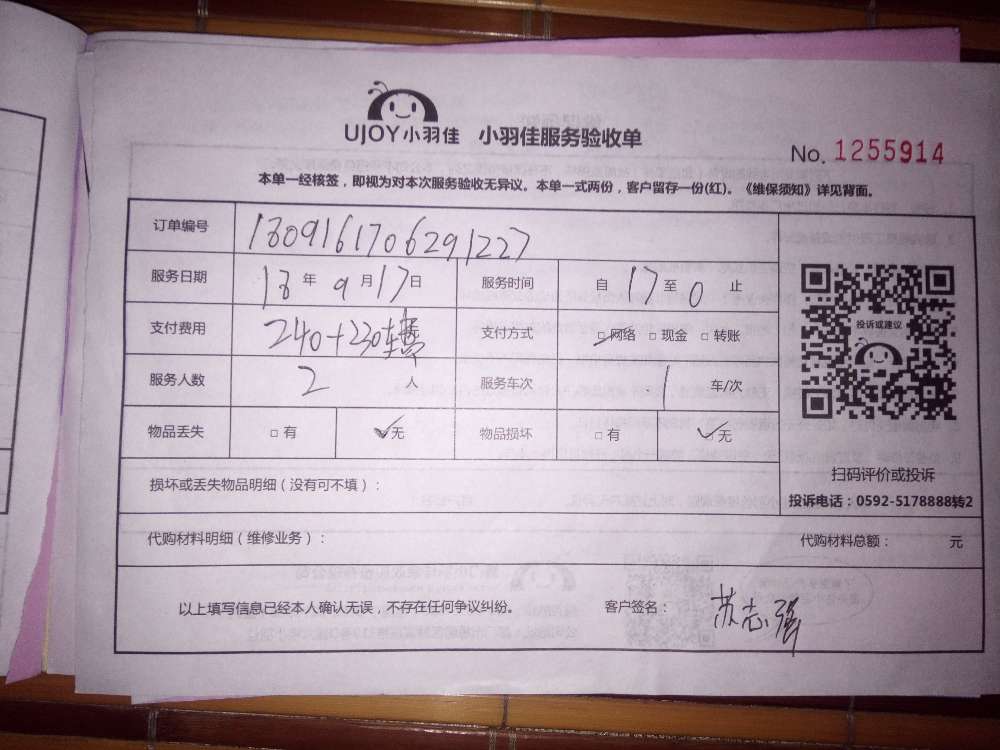 UJOY小羽佳 小羽佳服务验收单
No. 1255914
本单一经核签，即视为对本次服务验收无异议。本单一式两份，客户留存一份(红)。《维保须知》详见背面。
订单编号 1809161706291227
服务日期 18年9月17日 服务时间 自17至0止
支付费用 240+230车费 支付方式 □网络 □现金 □转账
投诉或建议
服务人数 2人 服务车次 1车/次
物品丢失 □有 ☑无 物品损坏 □有 ☑无
扫码评价或投诉
损坏或丢失物品明细（没有可不填）：
投诉电话：0592-5178888转2
代购材料明细（维修业务）： 代购材料总额： 元
以上填写信息已经本人确认无误，不存在任何争议纠纷。 客户签名： 苏志强